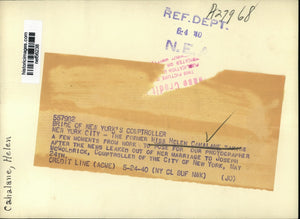 A27968
REF. DEPT.
5-4 40
N. E. A.
557902
BRIDE OF NEW YORK'S COMPTROLLER
NEW YORK CITY - THE FORMER MISS HELEN CAHALANE
A FEW MOMENTS FROM WORK TO POSE FOR OUR PHOTOGRAPHER
AFTER THE NEWS LEAKED OUT OF HER MARRIAGE TO JOSEPH
MCGOLDRICK, COMPTROLLER OF THE CITY OF NEW YORK, MAY
24TH.
CREDIT LINE (ACME) 5-24-40 (NY CL BUF NWK) (JO)
Cahalane, Helen
historicimages.com